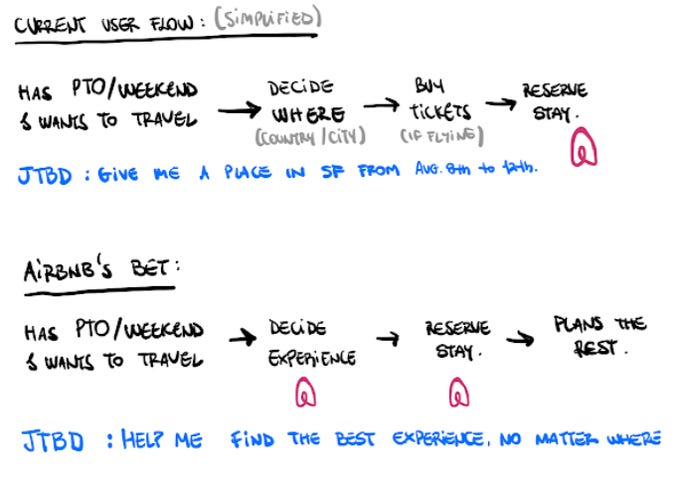 CURRENT USER FLOW: (SIMPLIFIED)
HAS PTO/WEEKEND
& WANTS TO TRAVEL
DECIDE
WHERE
(COUNTRY/CITY)
BUY
TICKETS
(IF FLYING)
RESERVE
STAY.
JTBD: GIVE ME A PLACE IN SF FROM AUG. 8th to 12th.
AIRBNB'S BET:
HAS PTO/WEEKEND
& WANTS TO TRAVEL
DECIDE
EXPERIENCE
RESERVE
STAY.
PLANS THE
REST.
JTBD: HELP ME FIND THE BEST EXPERIENCE, NO MATTER WHERE